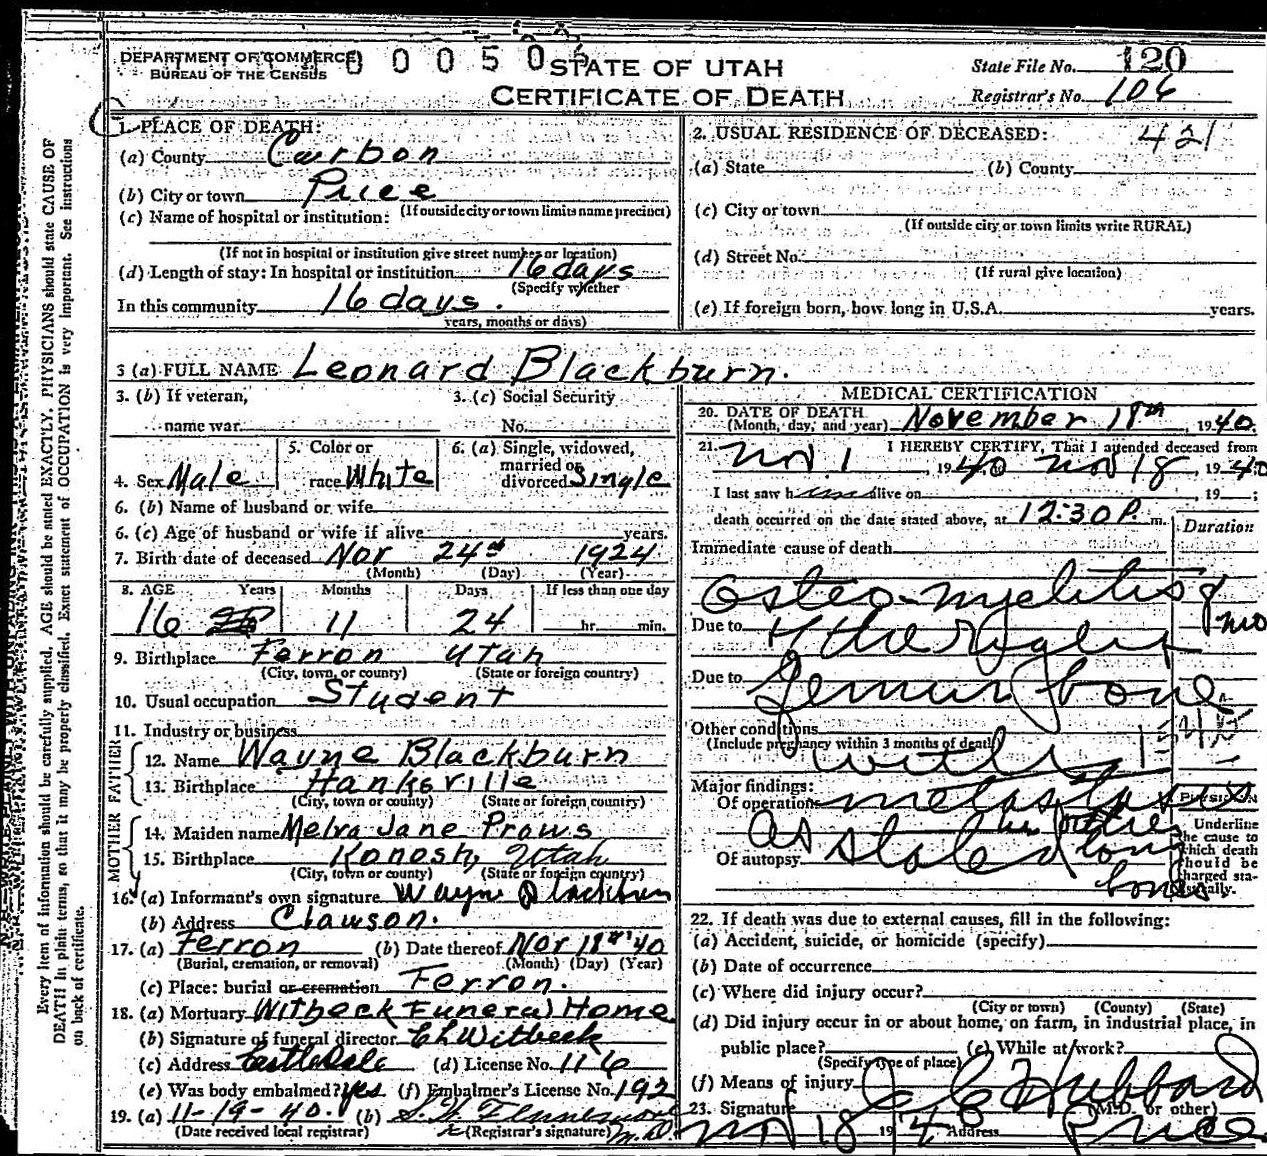 DEPARTMENT OF COMMERCE
BUREAU OF THE CENSUS
0 0 0 5 0
STATE OF UTAH
CERTIFICATE OF DEATH
State File No. 120
Registrar's No. 106
1. PLACE OF DEATH:
(a) County Carbon
(b) City or town Price
(If outside city or town limits name precinct)
(c) Name of hospital or institution:
(If not in hospital or institution give street number or location)
(d) Length of stay: In hospital or institution 16 days
(Specify whether
In this community 16 days.
years, months or days)
2. USUAL RESIDENCE OF DECEASED: 421
(a) State (b) County
(c) City or town
(If outside city or town limits write RURAL)
(d) Street No.
(If rural give location)
(e) If foreign born, how long in U.S.A. years.
3 (a) FULL NAME Leonard Blackburn.
3. (b) If veteran, 3. (c) Social Security
name war No.
4. Sex Male 5. Color or race White 6. (a) Single, widowed, married or divorced Single
6. (b) Name of husband or wife
6. (c) Age of husband or wife if alive years.
7. Birth date of deceased Nov 24th 1924
(Month) (Day) (Year)
8. AGE Years Months Days If less than one day
16 11 24 hr. min.
9. Birthplace Ferron Utah
(City, town, or county) (State or foreign country)
10. Usual occupation Student
11. Industry or business
FATHER
12. Name Wayne Blackburn
13. Birthplace Hanksville
(City, town or county) (State or foreign country)
MOTHER
14. Maiden name Melva Jane Prows
15. Birthplace Kanosh, Utah
(City, town or county) (State or foreign country)
16. (a) Informant's own signature Wayne Blackburn
(b) Address Clawson.
17. (a) Ferron (b) Date thereof Nov 18th '40
(Burial, cremation, or removal) (Month) (Day) (Year)
(c) Place: burial or cremation Ferron.
18. (a) Mortuary Witbeck Funeral Home
(b) Signature of funeral director C L Witbeck
(c) Address Castle Dale (d) License No. 116
(e) Was body embalmed? yes (f) Embalmer's License No. 192
19. (a) 11-19-40. (b)
(Date received local registrar) (Registrar's signature) M.D.
MEDICAL CERTIFICATION
20. DATE OF DEATH
(Month, day, and year) November 18th, 1940.
21. I HEREBY CERTIFY, That I attended deceased from
Nov 1, 1940 Nov 18, 1940
I last saw him alive on , 19 ;
death occurred on the date stated above, at 12:30 P. m.
Duration
Immediate cause of death
Osteo-myelitis
Due to of the Right
mo
Due to Femur bone
Other conditions
(Include pregnancy within 3 months of death)
with
Major findings:
Of operations metastasis
PHYSICIAN
in other long bones
Of autopsy As stated
Underline the cause to which death should be charged statistically.
22. If death was due to external causes, fill in the following:
(a) Accident, suicide, or homicide (specify)
(b) Date of occurrence
(c) Where did injury occur?
(City or town) (County) (State)
(d) Did injury occur in or about home, on farm, in industrial place, in
public place? (e) While at work?
(Specify type of place)
(f) Means of injury
23. Signature J C Hubbard (M.D. or other)
Nov 18 1940 Address Price
Every item of information should be carefully supplied. AGE should be stated EXACTLY. PHYSICIANS should state CAUSE OF
DEATH in plain terms, so that it may be properly classified. Exact statement of OCCUPATION is very important. See instructions
on back of certificate.